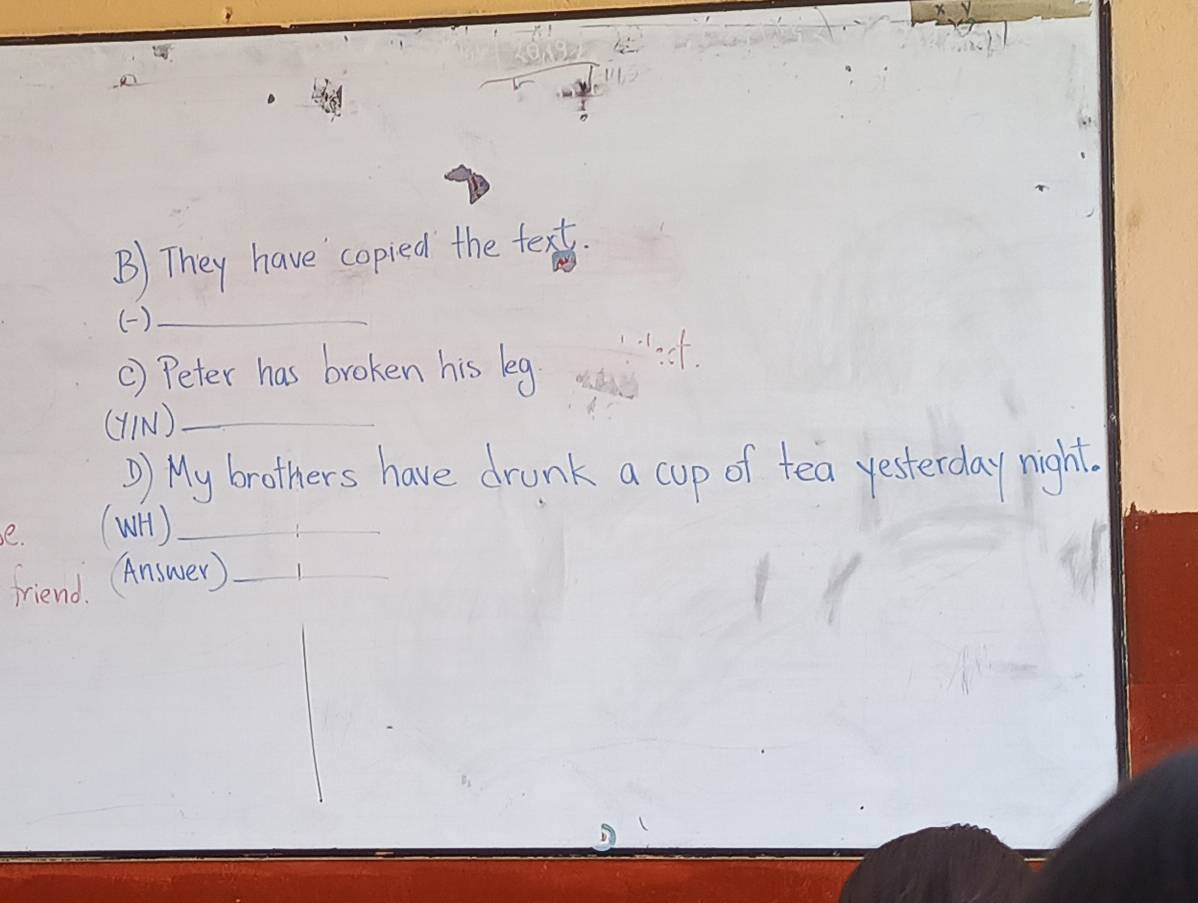 B) They have copied the text.
(-)
C) Peter has broken his leg.
(Y/N)
D) My brothers have drunk a cup of tea yesterday night.
(WH)
(Answer)
friend.